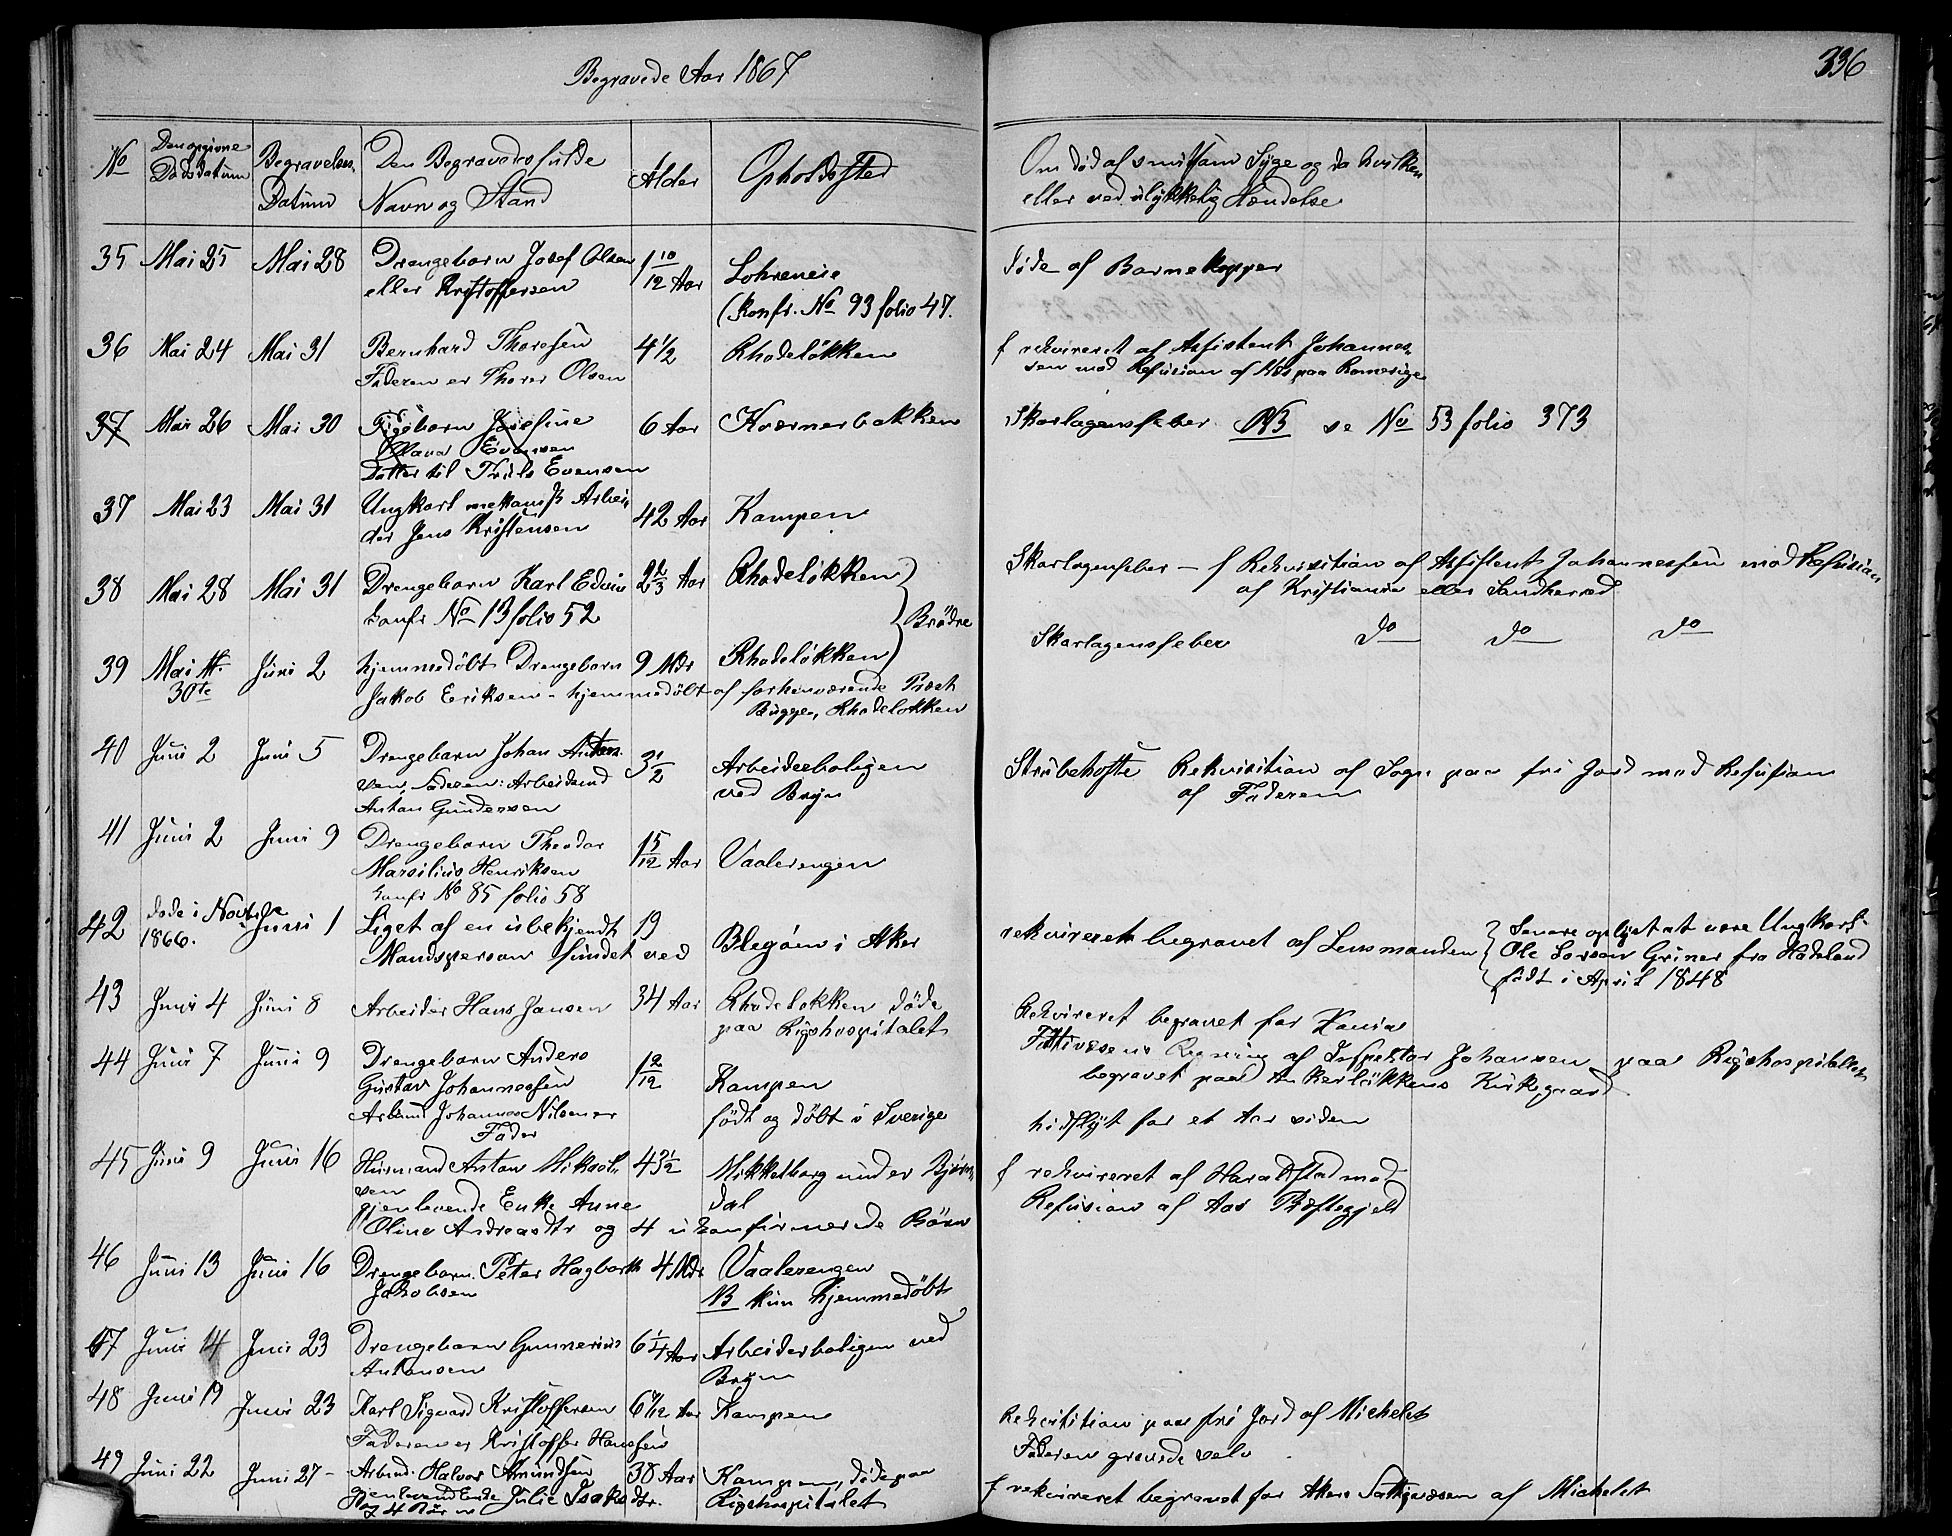 Begravede Aar 1867
336
No
Den opgivne Dødsdatum
Begravelses Datum
Den Begravedes fulde Navn og Stand
Alder
Opholdssted
Om død af smitsom Syge og da hvilken
eller ved ulykkelig Hændelse
35 Mai 25 Mai 28 Drengebarn Josef Olsen 1 10/12 Aar Lohreneie døde af Barnekopper
eller Kristoffersen (Konfr. No 93 folio 47.
36 Mai 24 Mai 31 Bernhard Thoresen 4 1/2 Rhodeløkken f rekvireret af Assistent Johannes-
Faderen er Thorer Olsen sen mod Refusion af paa Romerige
37 Mai 26 Mai 30 Pigebarn Josefine 6 Aar Kværnerbakken Skarlagensfeber NB se No 53 folio 373
Olava Evensen
Datter til Truls Evensen
37 Mai 23 Mai 31 Ungkarl mekanisk Arbei- 42 Aar Kampen
der Jens Kristensen
38 Mai 28 Mai 31 Drengebarn Karl Edvin 2 2/3 Aar Rhodeløkken Skarlagensfeber – f Rekvisition af Assistent Johannessen mod Refusion
konfr No 13 folio 52 af Kristiania eller Landherred
Brødre
39 Mai 30te Juni 2 hjemmedøbt Drengebarn 9 Mdr Rhodeløkken Skarlagensfeber do do do
Jakob Eriksen – hjemmedøbt af forhenværende Prest
Bugge, Rhodeløkken
40 Juni 2 Juni 5 Drengebarn Johan Anton- 3 1/2 Arbeiderboligen Strubehoste Rekvisition af Sogn paa fri Jord mod Refusion
sen, Faderen: Arbeidsmd ved Bryn af Faderen
Anton Gundersen
41 Juni 2 Juni 9 Drengebarn Theodor 1 5/12 Aar Vaalerengen
Marsilius Henriksen
konfr No 85 folio 58
42 døde i Novbr 1866. Juni 1 Liget af en ubekjendt 19 Blegøen i Aker rekvireret begravet af Lensmanden
Mandsperson fundet ved
Senere oplyst at være Ungkarl
Ole Larsen Griner fra Hadeland
født i April 1848
43 Juni 4 Juni 8 Arbeider Hans Jansen 34 Aar Rhodeløkken døde Rekvireret begravet for Xania
paa Rigshospitalet Fattivæsens Regning af Inspektør Johansen paa Rigshospitalet
begravet paa Ankerløkkens Kirkegaard
44 Juni 7 Juni 9 Drengebarn Anders 1 2/12 Kampen
Gustav Johannessen født og døbt i Sverige hidflyt for et Aar siden
Arbmd Johannes Nilsen er
Fader
45 Juni 9 Juni 16 Husmand Anton Mikael- 43 1/2 Mikkelborg under Bjørn- f rekvireret af Haraldstad mod
sen dal Refusion af Aas Præstegjeld
gjenlevende Enke Anne
Oline Andreasdtr og 4 ukonfirmerede Børn
46 Juni 13 Juni 16 Drengebarn Peter Hagbarth 4 Mdr Vaalerengen
Jakobsen NB kun hjemmedøbt
47 Juni 14 Juni 23 Drengebarn Gunnerius 6 1/4 Aar Arbeiderboligen ved
Antonsen Bryn
48 Juni 19 Juni 23 Karl Sigvard Kristoffersen Aar Kampen Rekvisition paa fri Jord af Michelet
Faderen er Kristoffer Hansen Faderen gravede selv
49 Juni 22 Juni 27 – Arbmd. Halvor Amundsen 38 Aar Kampen, døde paa f rekvireret begravet for Akers Fattigvæsen af Michelet
gjenlevend Enke Julie Isaksdtr. Rigshospitalet
og 4 Børn